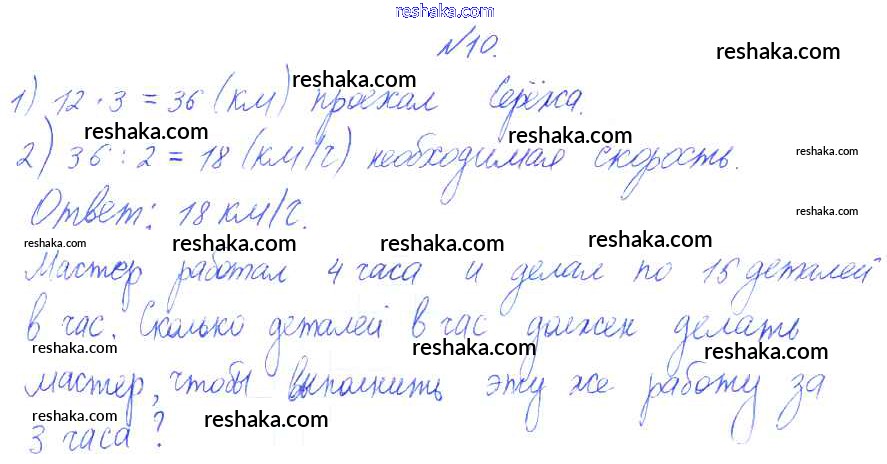 reshaka.com
№10.
reshaka.com
reshaka.com
1) 12 · 3 = 36 (км) проехал Серёжа.
reshaka.com
reshaka.com
2) 36 : 2 = 18 (км/ч) необходимая скорость.
Ответ: 18 км/ч.
reshaka.com
reshaka.com
reshaka.com
reshaka.com
reshaka.com
Мастер работал 4 часа и делал по 15 деталей
в час. Сколько деталей в час должен делать
reshaka.com
reshaka.com
reshaka.com
мастер, чтобы выполнить эту же работу за
reshaka.com
reshaka.com
3 часа?